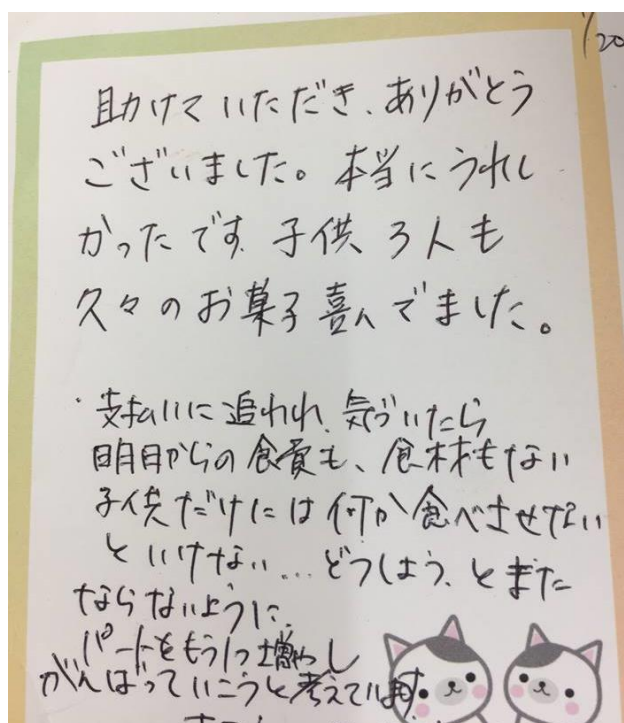 1/20
助けていただき、ありがとう
ございました。本当にうれし
かったです。子供3人も
久々のお菓子喜んでました。
支払いに追われ、気づいたら
明日からの食費も、食材もない
子供だけには何か食べさせない
といけない…どうしよう、とまた
ならないように、
パートをもう1つ増やし
がんばっていこうと考えています